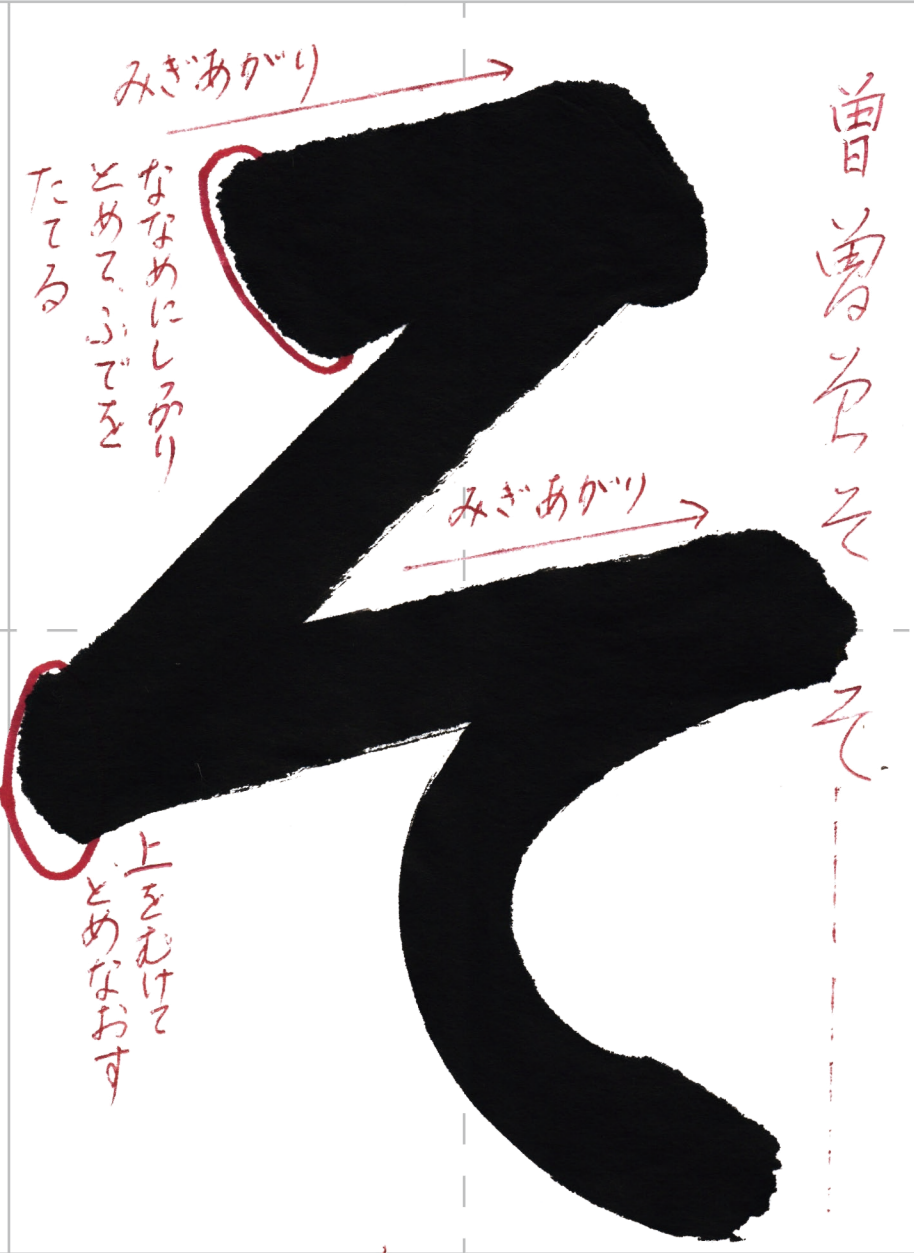 曽
曽
そ
そ
そ
みぎあがり
そ
ななめにしっかり
とめて、ふでを
たてる
みぎあがり
上をむけて
とめなおす